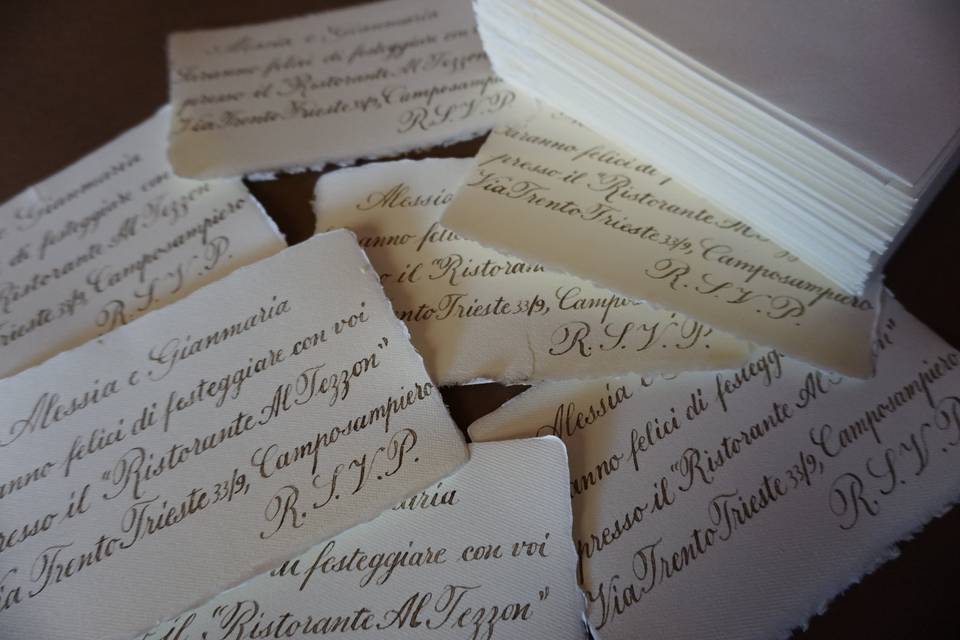 Alessia e Gianmaria
Saranno felici di festeggiare con
presso il "Ristorante Al Tezzon
Via Trento Trieste 33/9, Camposampiero
R.S.V.P.
Gianmaria
di festeggiare con
Ristorante Al Tezzon
Trieste 33/9, Camposampiero
R.S.V.P.
Saranno felici di
presso il "Ristorante Al
Via Trento Trieste 33/9, Camposampiero
R.S.V.P.
Alessia
il "Ristorante
Trento Trieste 33/9, Campo
R.S.V.P.
Alessia e Gianmaria
anno felici di festeggiare con voi
presso il "Ristorante Al Tezzon"
Via Trento Trieste 33/9, Camposampiero
R.S.V.P.
Alessia e
anno felici di festegg
presso il "Ristorante Al
Via Trento Trieste 33/9, Camposampiero
R.S.V.P.
aria
di festeggiare con voi
il "Ristorante Al Tezzon"